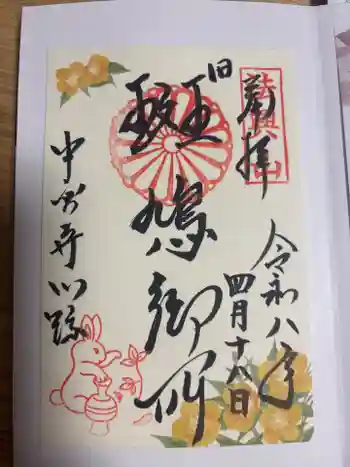 奉拝
令和八年
四月十八日
旧
斑鳩御所
中宮寺門跡